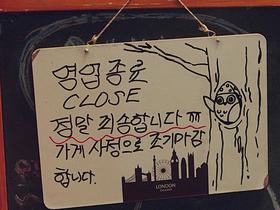 영업종료
CLOSE
정말 죄송합니다 ㅠㅠ
가게 사정으로 조기마감
합니다.
LONDON